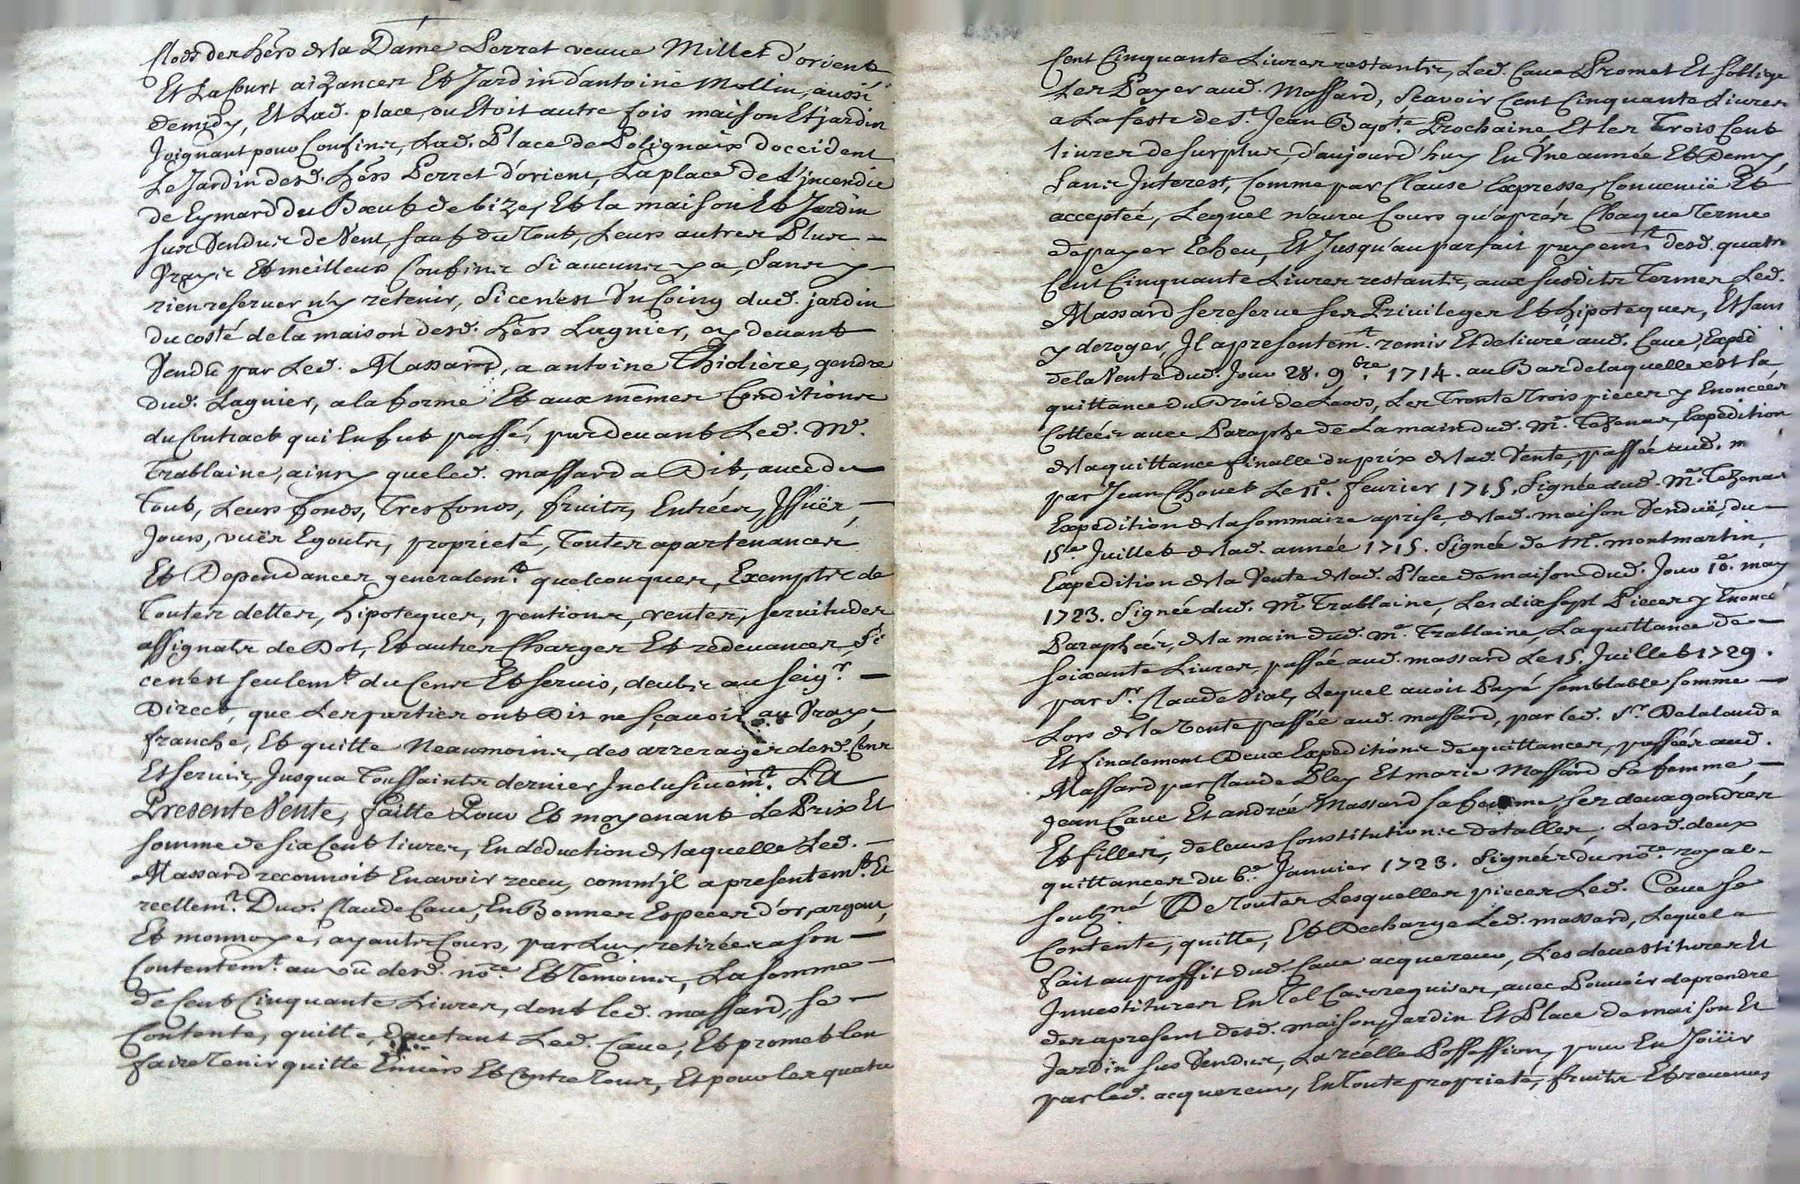 clos des hérs de la Dame Perret veuve Millet d'orient
Et La Court aizances Et Jardin d'antoine Mollin, aussi
demidy, Et Lad. place, ou Etoit autre fois maison Et jardin
Joignant pour Confins, Lad. Place de Polignaix d'occident
Le Jardin desd. hérs Perret d'orient, La place de L'jncendie
de Eymard du Bœuf de bize, Et la maison Et Jardin
sus Vendus de Vent, sauf du Tout, Leurs autres Plus
Vrayx Et meilleurs Confins Si aucuns y a, Sans y
rien reserver n'y retenir, Si cen'est Un Coing dud. jardin
du costé de la maison desd. hérs Lagnier, cy devant
Vendu par Led. Massard, a antoine Thioliere, gendre
dud. Lagnier, a la forme Et aux mêmes Conditions
du Contract qui En fut passé, pardevant Led. Me.
Trablaine, ainsy que led. massard a Dit, avec du
Tout, Leurs fonds, Tresfonds, fruits, Entrées, Jssuës,
Jours, vuës Egouts, proprieté, Toutes apartenances
Et Dependances generalemt. quelconques, Exempts de
Toutes dettes, hipoteques, pentions, ventes, servitudes
assignats de Dot, Et autres Charges Et redevances, Si
cen'est seulemt. du Cens Et servis, deubs au seigr.
Direct, que Les parties ont Dit ne sçavoir au Vray
franche, Et quitte Neaumoins, des arrerages desd. Cens
Et servis, Jusqua Toussaints dernier Jnclusivemt. La
Presente Vente, faitte Pour Et moyenant Le Prix Et
somme de six Cent livres, En déduction de laquelle Led.
Massard reconnoit En avoir receu, comm'jl a presentemt. Et
reellemt. Dud. Claude Cave, En Bonnes Especes d'or, argent,
Et monnoye, ayants Cours, par Luy retirée a son
Contentemt. au vû desd. nore. Et Temoins, La somme
de Cent Cinquante Livres, dont led. massard, se
Contente, quitte, D'autant Led. Cave, Et promet l'en
faire Tenir quitte Envers Et Contre Tous, Et pour les quatre
Cent Cinquante Livres restants, Led. Cave Promet Et s'oblige
Les Payer aud. Massard, Scavoir Cent Cinquante Livres
a La feste de St. Jean Bapte. Prochaine Et les Trois Cent
livres de surplus, d'aujourd'huy En Une année Et Demy,
sans Jnterest, Comme par Clause Expresse, Convenüe Et
acceptée, Lequel n'aura Cours qu'aprés Chaque Terme
de payer Echeu, Et Jusqu'au parfait payemt. desd. quatre
Cent Cinquante Livres restants, aux susdits Termes Led.
Massard se reserve ses Privileges Et hipoteques, Et sans
y deroger, Jl a presentemt. remis Et delivré aud. Cave, Expéd
de la Vente dud. Jour 28. 9bre. 1714. au Bas de laquelle est la
quittance du Droit de Laods, Les Trente Trois pieces y Enoncées
Cottées avec Paraphe de La main dud. Me. Tezenas, Expedition
de la quittance finalle du prix de lad. Vente, passée aud. m
par Jean Chovet Le 11e. fevrier 1715. Signée dud. Me. Tezenas
Expedition de la sommaire aprise, de lad. maison Venduë, du
15e. Juillet de lad. année 1715. Signée de Me. montmartin,
Expedition de la Vente de lad. Place de maison dud. Jour 10e. may
1723. Signée dud. Me. Trablaine, Les dix sept Pieces y Enoncé
Paraphés, de la main dud. Me. Trablaine, La quittance de
soixante Livres, passée aud. massard Le 15. Juillet 1729.
par Sr. Claude Vial, Lequel avoit Payé semblable somme
Lors de la Vente passée aud. massard, par led. Sr. Delalande
Et finalement Deux Expeditions de quittances, passées aud.
Massard par Claude Pley Et marie Massard sa femme,
Jean Cave Et andrée Massard sa femme, ses deux gendres
Et filles, de leurs Constitutions dotalles, Lesd. deux
quittances du 6e. Janvier 1723. Signées du nore. royal
soubzné De Toutes Lesquelles pieces Led. Cave se
Contente, quitte, Et Decharge Led. massard, Lequel a
fait au proffit dud. Cave acquereur, Les devestitures Et
Jnvestitures En Tel Cas requises, avec Pouvoir de prendre
des a present desd. maison, Jardin Et Place de maison Et
Jardin sus Vendus, La reélle Possession, pour En Joüir
par led. acquereur, En Toute proprieté, fruits Et revenus